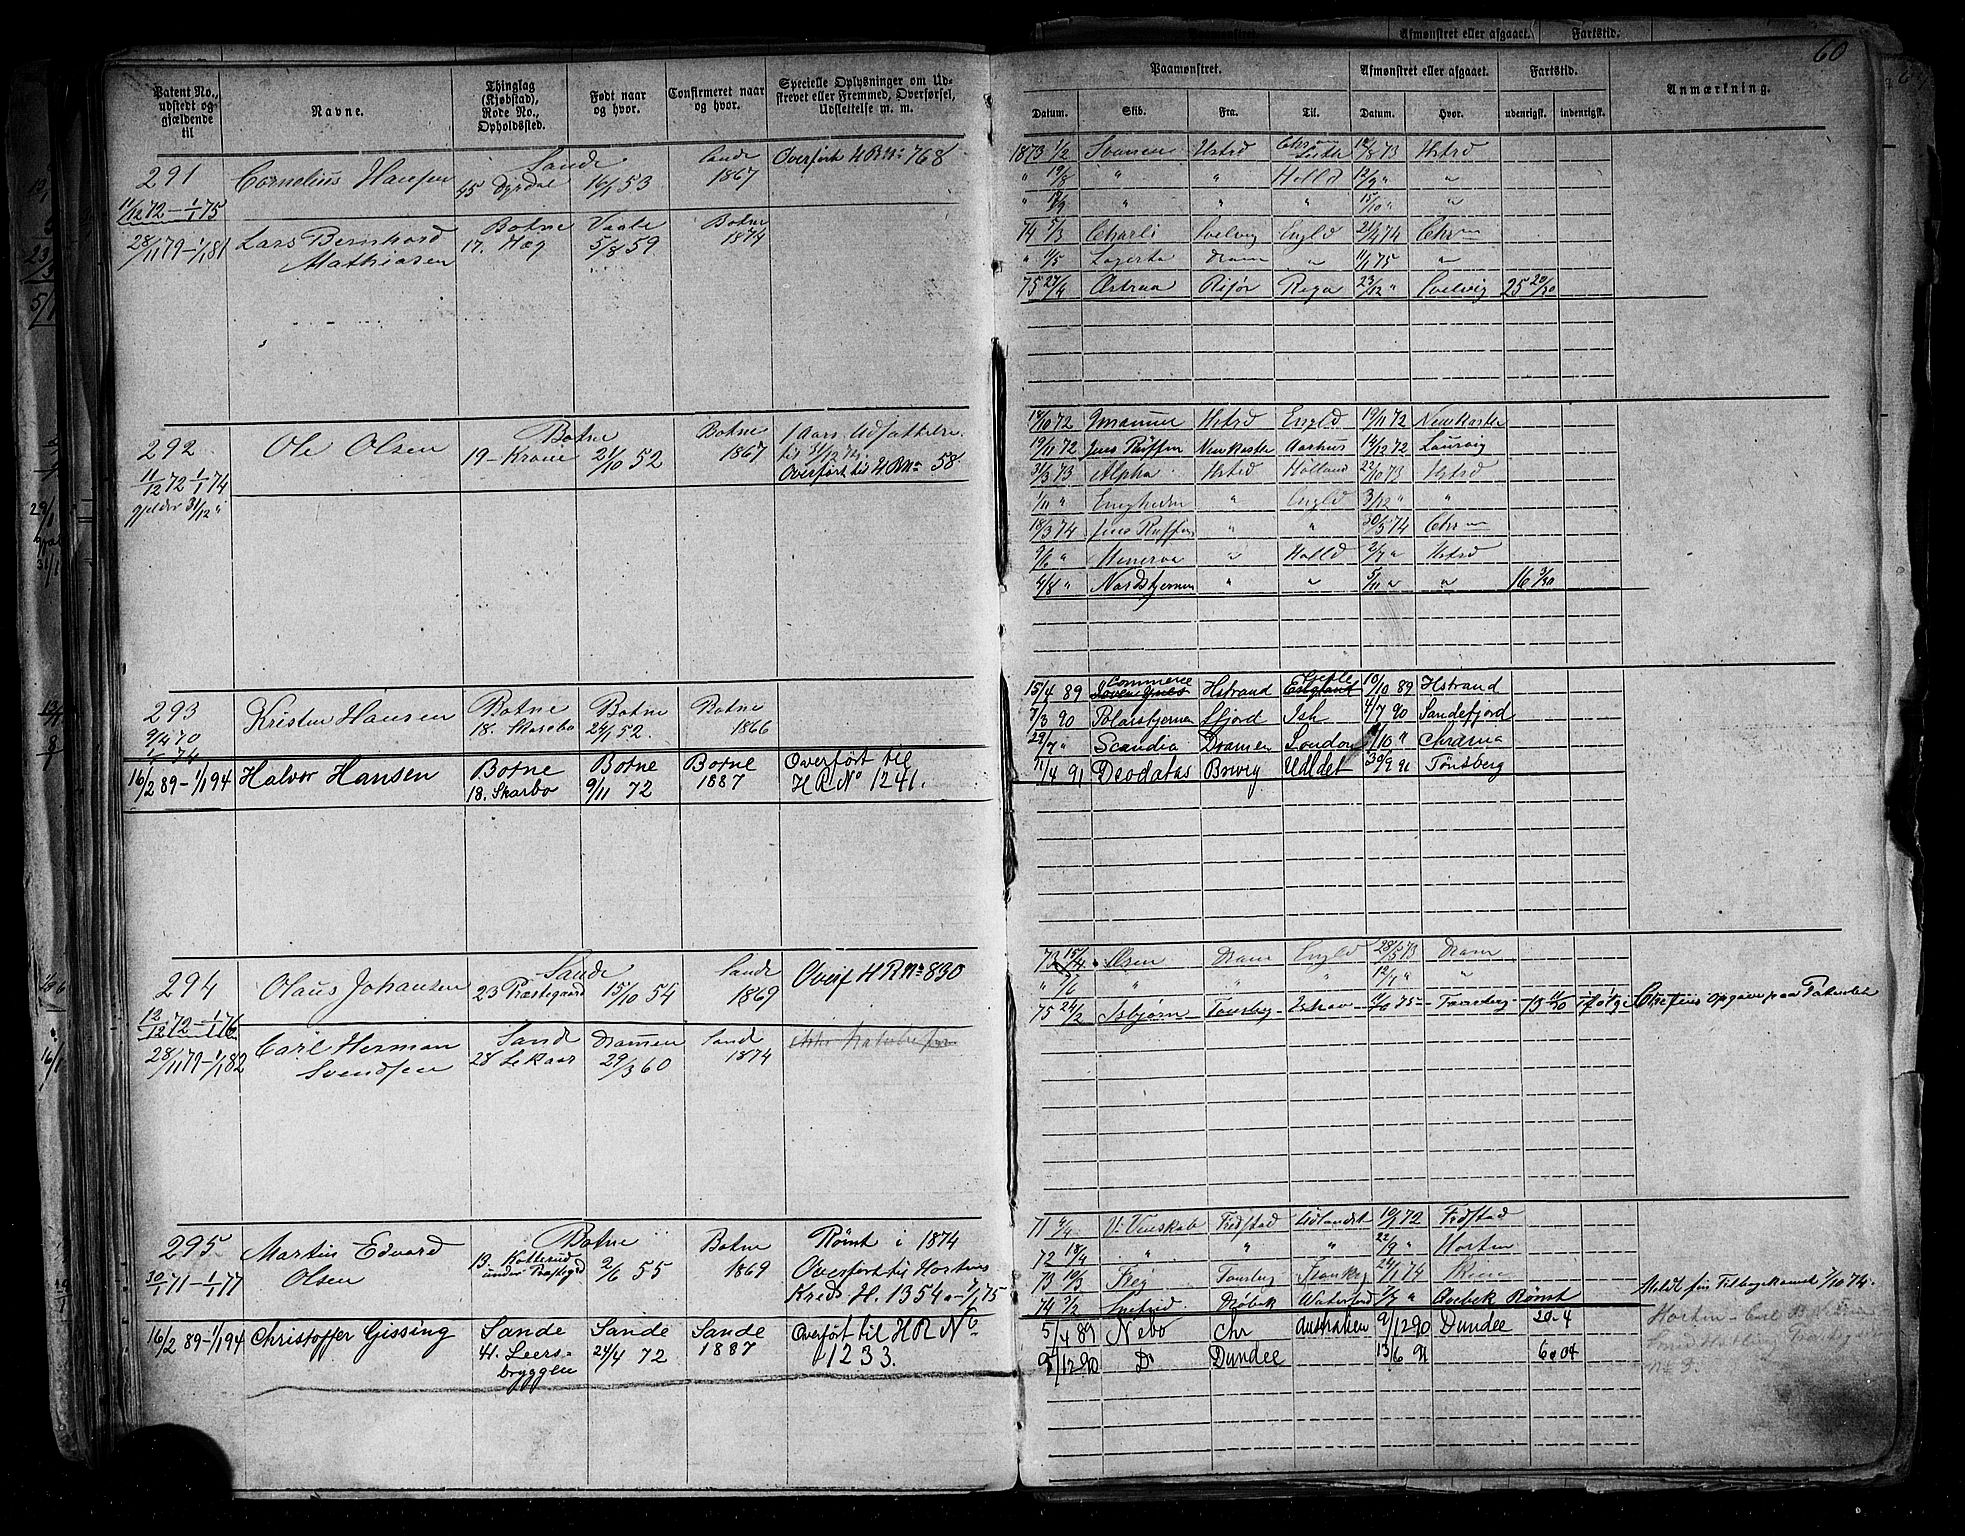 60
Patent No., udstedt og gjældende til
Navne.
Thinglag (Kjøbstad), Rode No., Opholdssted.
Født naar og hvor.
Confirmeret naar og hvor.
Specielle Oplysninger om Udskrevet eller Fremmed, Overførsel, Udslettelse m. m.
Paamønstret.
Afmønstret eller afgaaet.
Fartstid.
Anmærkning.
Datum.
Skib.
Fra.
Til.
Datum.
Hvor.
udenrigsk.
indenrigsk.
291 Cornelius Hansen Sande 45 Dyrdal 16/1 53 Sande 1867 Overført HRNo 768
11/12 72 – 1/1 75
28/11 79 – 1/1 81 Lars Bernhard Mathiasen Botne 17. Hag Vaale 5/8 59 Botne 1874
1873 1/2 Svanen Hstrd 18/8 73 Hstrd
" 19/8 " " Holld 12/9 " "
" 17/9 " " " 15/10 " "
74 5/3 Charli Svelvig Engld 21/4 74 Chr
" 11/5 Lagerta Dram " 11/1 75 "
75 27/4 Astraa Risør Riga 23/12 " Svelvig 25 20/30
292 Ole Olsen Botne 19 – Krone 21/10 52 Botne 1867 1 Aars Udsættelse til 31/12 72. Overført til HRNo 58
11/12 72 – 1/1 74
gjelder 31/12 "
14/10 72 Immanuel Hstrd Engld 19/11 72 Newkastle
19/11 72 Jens Ruffen Newkastle Aarhuus 14/12 72 Laurvig
31/3 73 Alpha Hstrd Holland 22/10 73 Hstrd
1/11 " Enigheden " Engld 3/12 " "
18/3 74 Jens Ruffen " " 30/5 74 Chr
9/6 " Minerva " Holld 2/7 " Hstrd
4/8 " Nordstjernen " " 5/11 " " 16 3/30
293 Kristen Hansen Botne 18. Skarebo Botne 24/1 52. Botne 1866
9/4 70
1/1 74
16/2 89 – 1/1 94 Halvor Hansen Botne 18. Skarbo Botne 9/11 72 Botne 1887 Overført til HRNo 1241.
15/4 89 Commerce Hstrand Gefle England 10/10 89 Hstrand
7/3 90 Polarstjernen Sfjord Ish 4/7 90 Sandefjord
29/7 " Scandia Dramen London /10 " Chrania
11/4 91 Deodatas Brevig Udldet 30/9 91 Tønsberg
294 Olaus Johansen Sande 23 Præstegaard 15/10 54 Sande 1869 Overf HRNo 830
12/12 72 – 1/1 76
28/11 79 – 1/1 82 Carl Herman Svendsen Sand 28 Lekaas Dramen 29/3 60 Sand 1874
73 15/4 Olsen Dram Engld 28/5 73 Dram
" 7/6 " " " 12/7 " "
75 24/2 Isbjørn Tønsberg Ishav /6 75 – Tønsberg – 13 11/30 ifølge Opgave paa Patentet
295 Martin Edvard Olsen Botne 13. Kotterud under Præstegrd 2/6 55 Botne 1869 Rømt i 1874 Overført til Hortens Kreds H. 1354 a – 7/1 75
30/1 71 – 1/1 77
16/2 89 – 1/1 94 Christoffer Gissing Sande 41. Leersbryggen Sande 24/4 72 Sande 1887 Overført til HR No 1233.
71 4/4 Venskab Fredstad Udlandet 19/1 72 Fredstad
72 18/4 " " " 22/9 " Horten
73 10/3 Frey Tønsberg Frankrig 24/1 74
74 7/2 Drøbak Waterford /7 " Qvebek Rømt 7/10 74.
5/4 89 Nebo Chr Australien 9/12 90 Dundee 20–4
9/12 90 Do Dundee 13/6 91 6 a 04
Horten – Carl